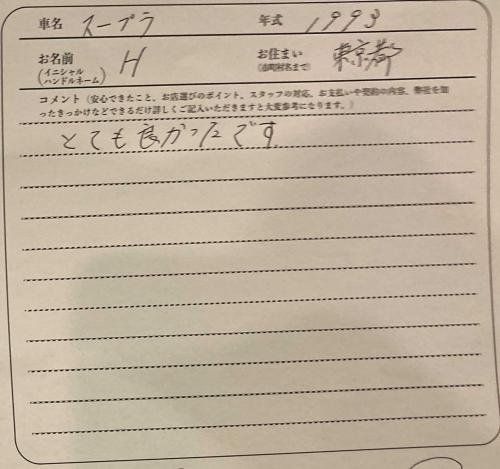 車名 スープラ 年式 1993
お名前 (イニシャル ハンドルネーム) H お住まい (市町村名まで) 東京都
コメント (安心できたこと、お店選びのポイント、スタッフの対応、お支払いや契約の内容、弊社を知
ったきっかけなどできるだけ詳しくご記入いただきますと大変参考になります。)
とても良かったです